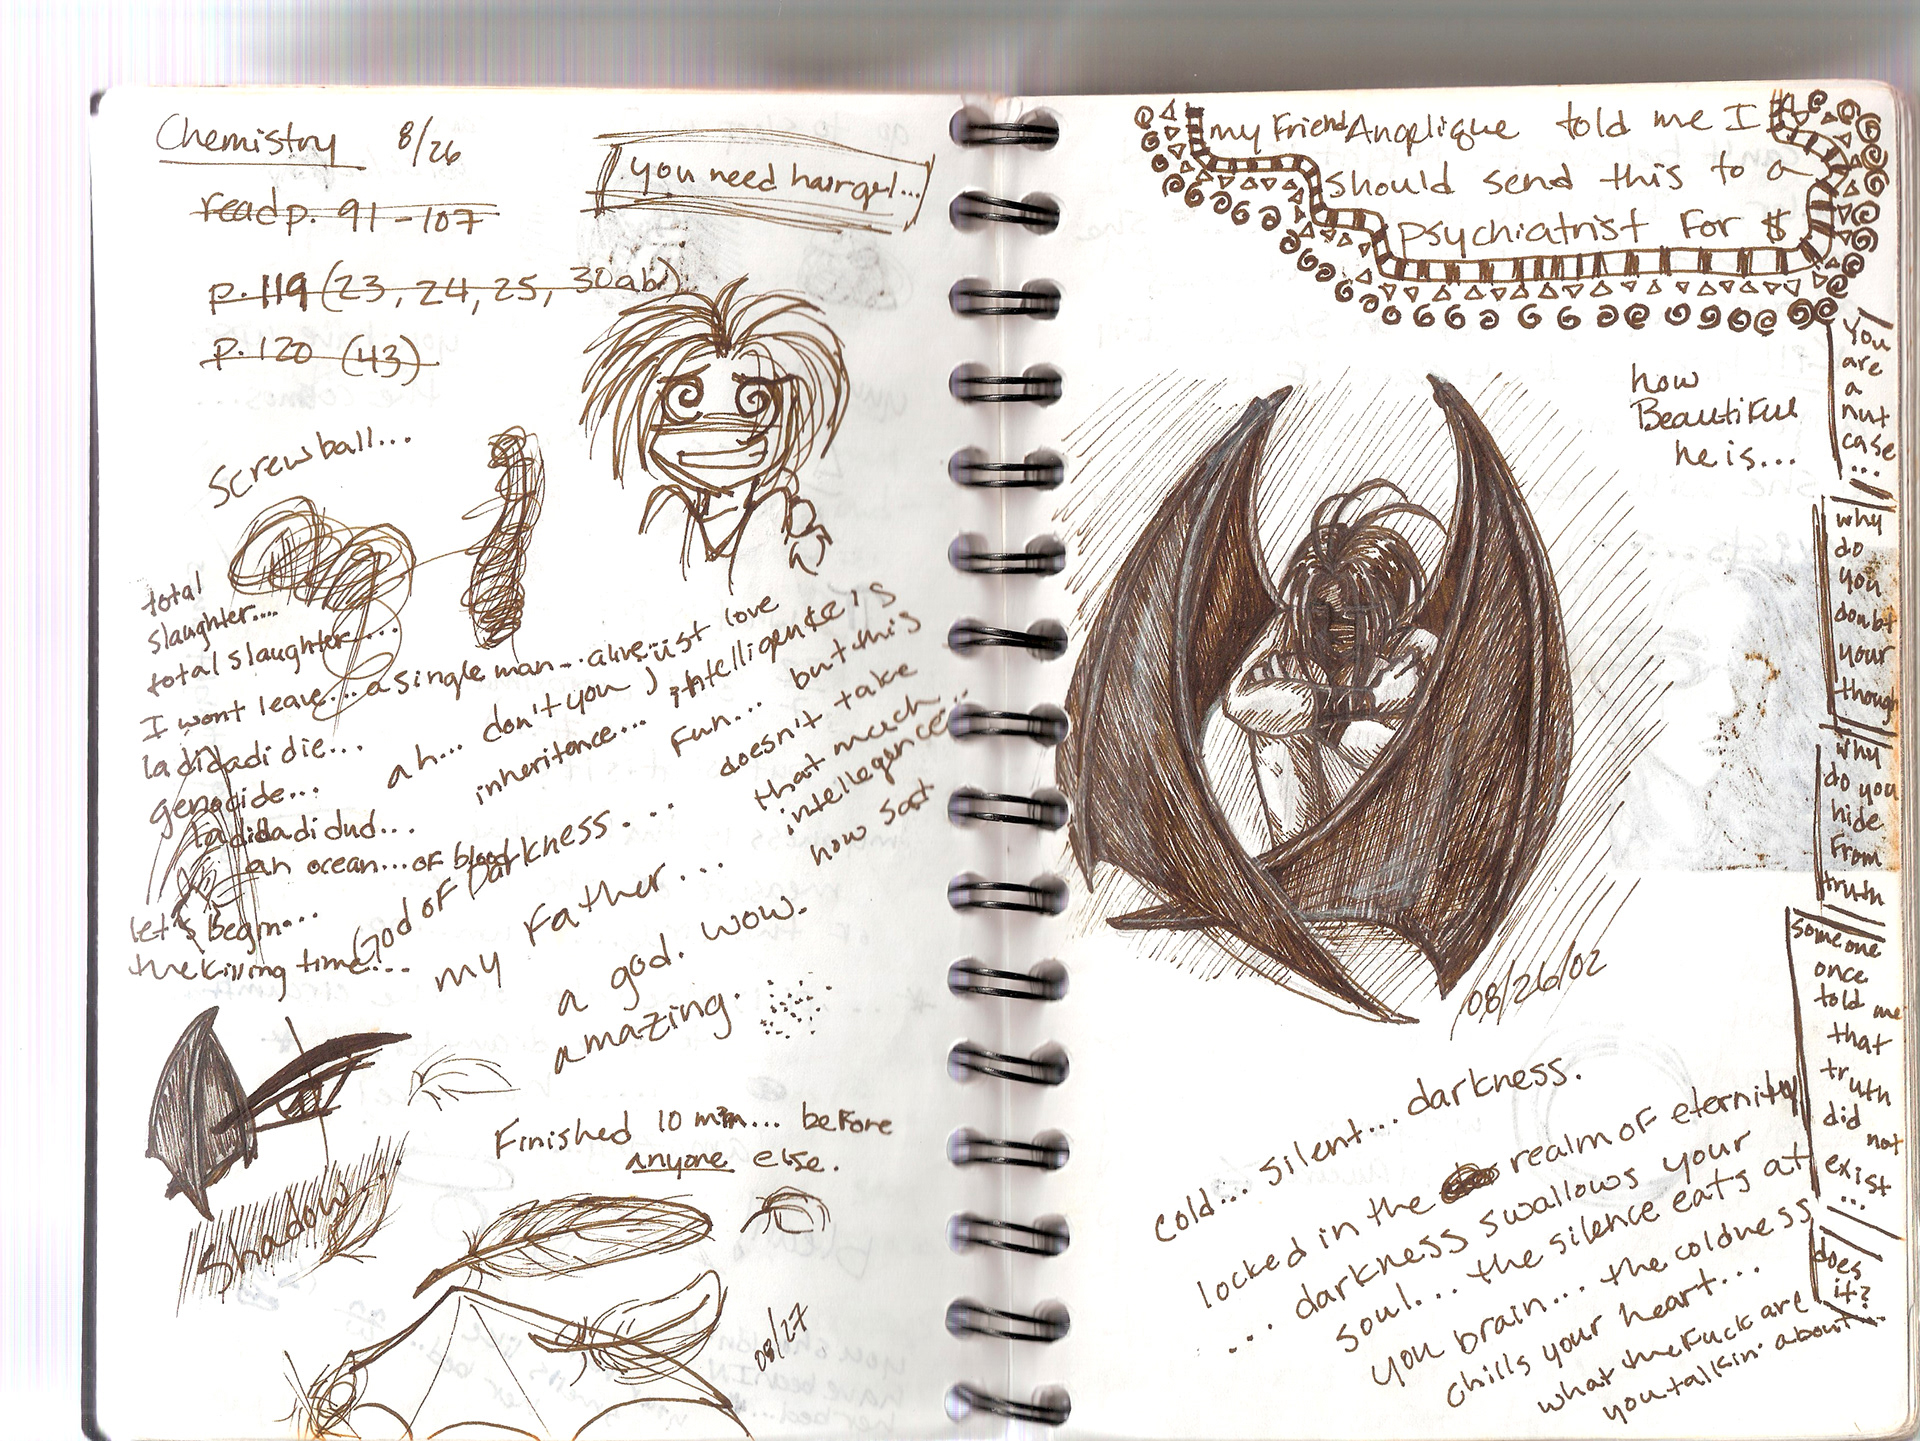 Chemistry 8/26
read p. 91-107
p. 119 (23, 24, 25, 30ab)
p. 120 (43)
you need hairgel...
Screwball...
total
slaughter....
total slaughter....
I wont leave... a single man... alive
ladidadi die...
genocide...
ladidadi dud...
an ocean... of blood
let's begin...
the killing time...
ah... don't you just love
inheritance... intelligence is
fun... but this
doesn't take
that much...
intellegence...
how sad
God of Darkness...
my father...
a god. wow.
amazing.
Finished 10 min... before
anyone else.
Shadow...
08/27
my Friend Angelique told me I
should send this to a
psychiatrist For $
how
Beautiful
he is...
you
are
a
nut
case
...
why
do
you
doubt
your
though
why
do you
hide
From
truth
someone
once
told me
that
truth
did
not
exist
...
does
it?
08/26/02
cold... silent... darkness.
locked in the realm of eternity
.... darkness swallows your
soul... the silence eats at
you brain... the coldness
chills your heart...
what the Fuck are
you talkin' about...